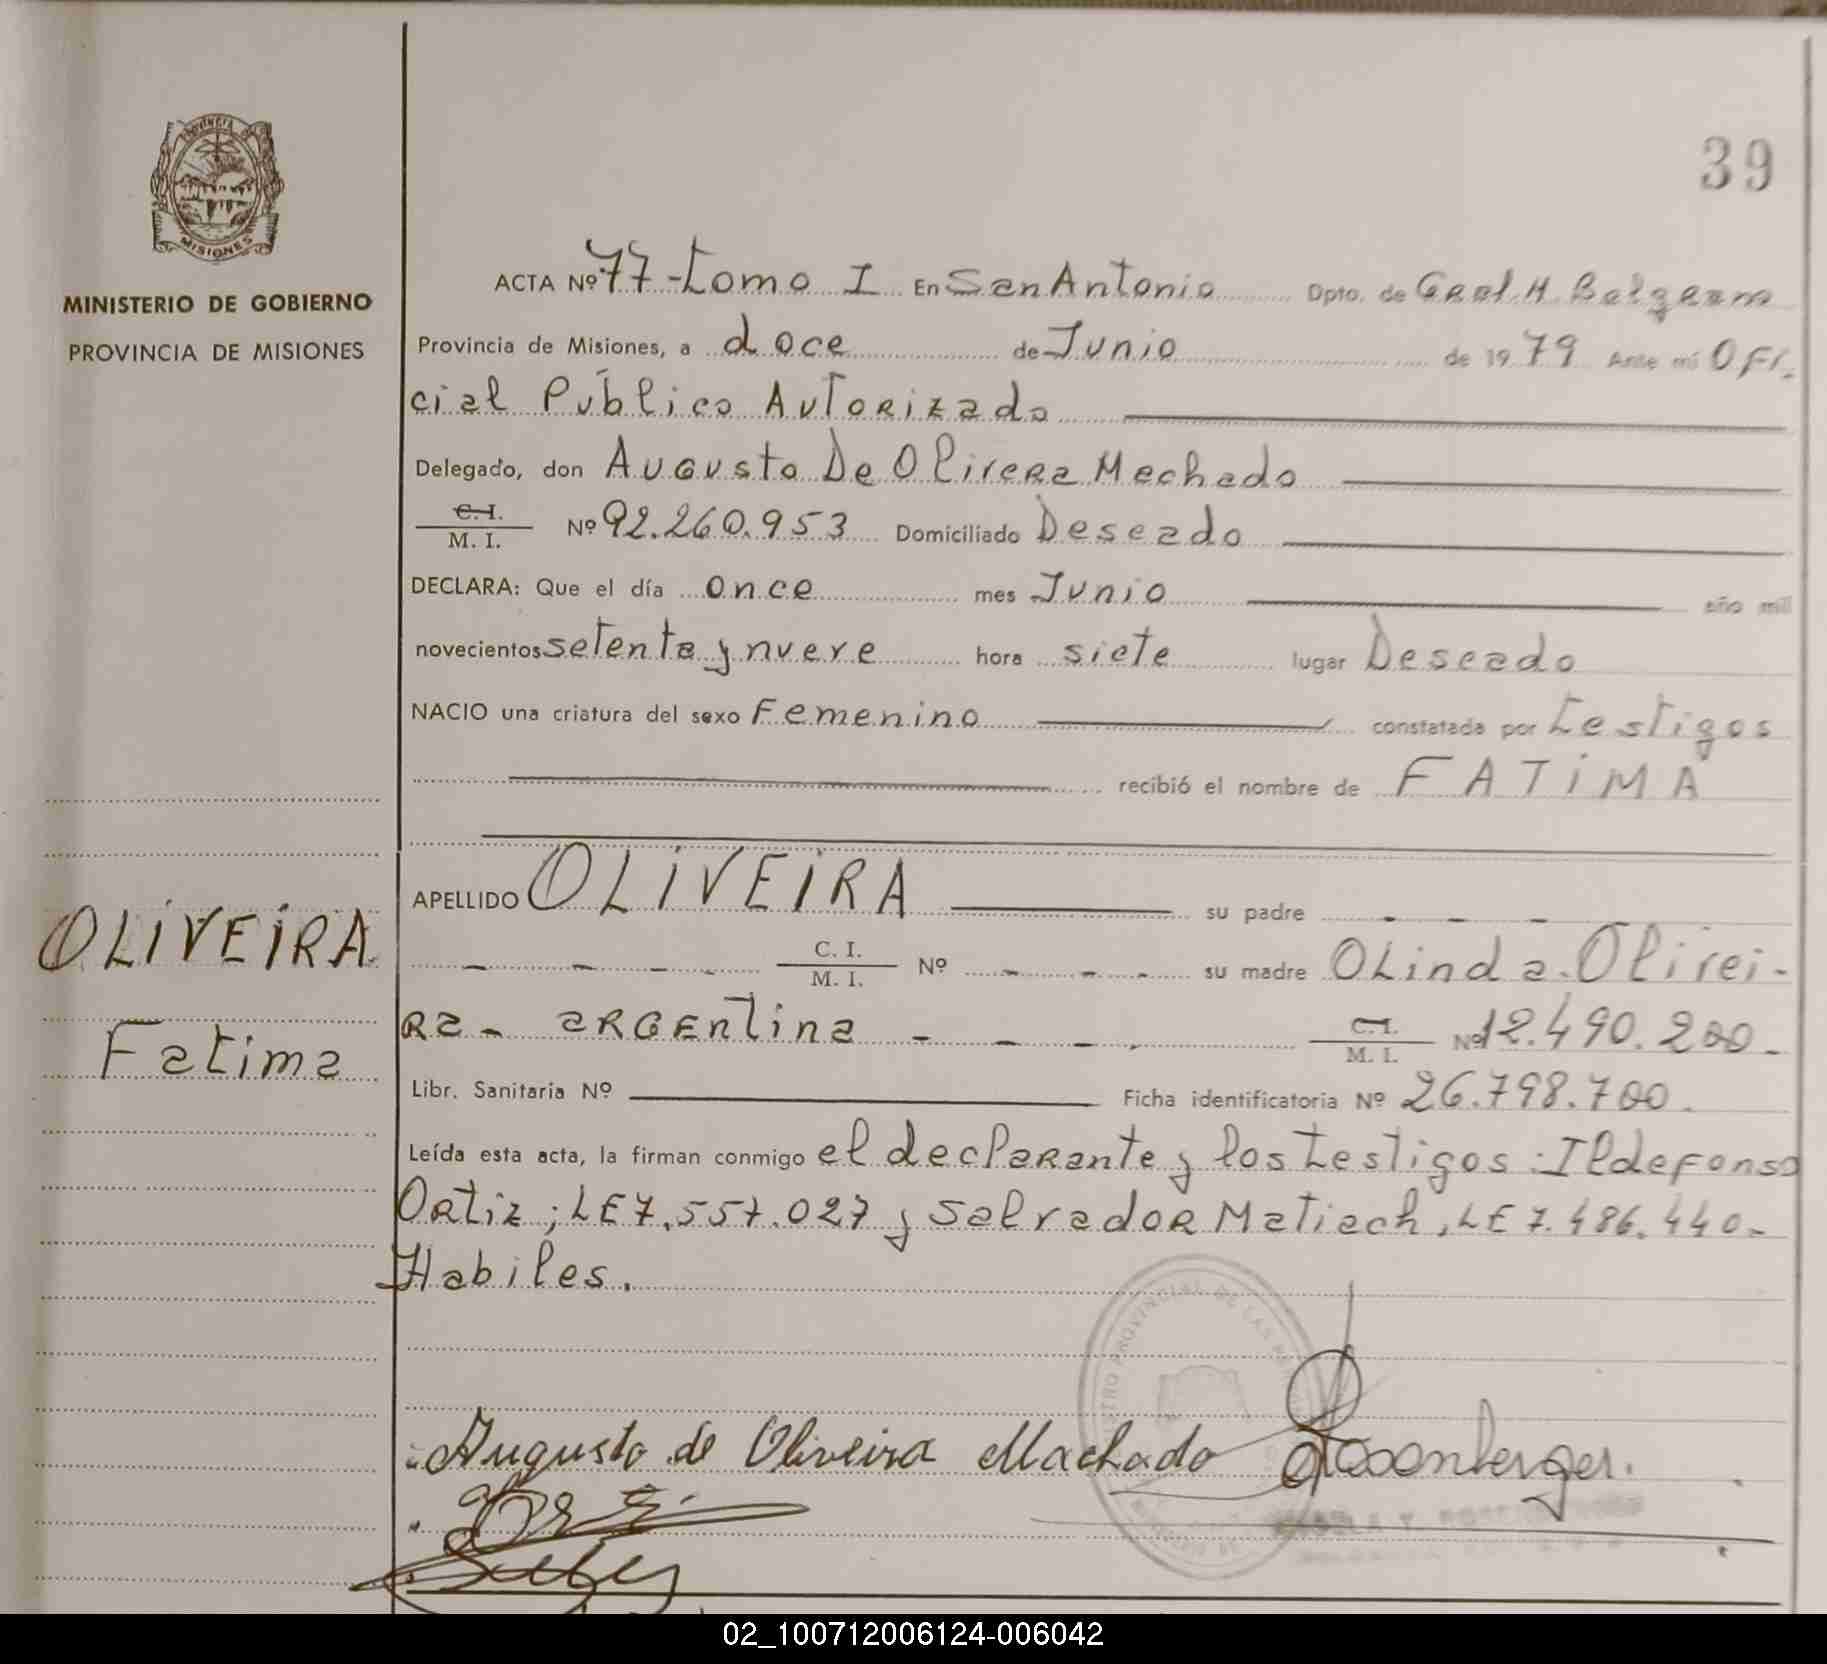 PROVINCIA DE
MISIONES
MINISTERIO DE GOBIERNO
PROVINCIA DE MISIONES
39
ACTA Nº 77-Tomo I En San Antonio Dpto. de Gral. M. Belgrano
Provincia de Misiones, a doce de Junio de 1979 Ante mí Ofi-
cial Público Autorizado
Delegado, don Augusto De Olivera Machado
C.I. / M. I. Nº 92.260.953 Domiciliado Deseado
DECLARA: Que el día once mes Junio año mil
novecientos setenta y nueve hora siete lugar Deseado
NACIO una criatura del sexo Femenino constatada por Testigos
recibió el nombre de FATIMA
APELLIDO OLIVEIRA su padre - - -
- - - - C. I. / M. I. Nº - - - su madre Olinda Olivei-
ra - argentina - - - - C.I. / M. I. Nº 12.490.200.-
Libr. Sanitaria Nº Ficha identificatoria Nº 26.798.700.
Leída esta acta, la firman conmigo el declarante y los Testigos: Ildefonso
Ortiz; LE 7.557.027 y Salvador Matiach, LE 7.486.440.-
Habiles.
OLIVEIRA
Fatima
REGISTRO PROVINCIAL DE LAS
Augusto de Oliveira Machado
02_100712006124-006042